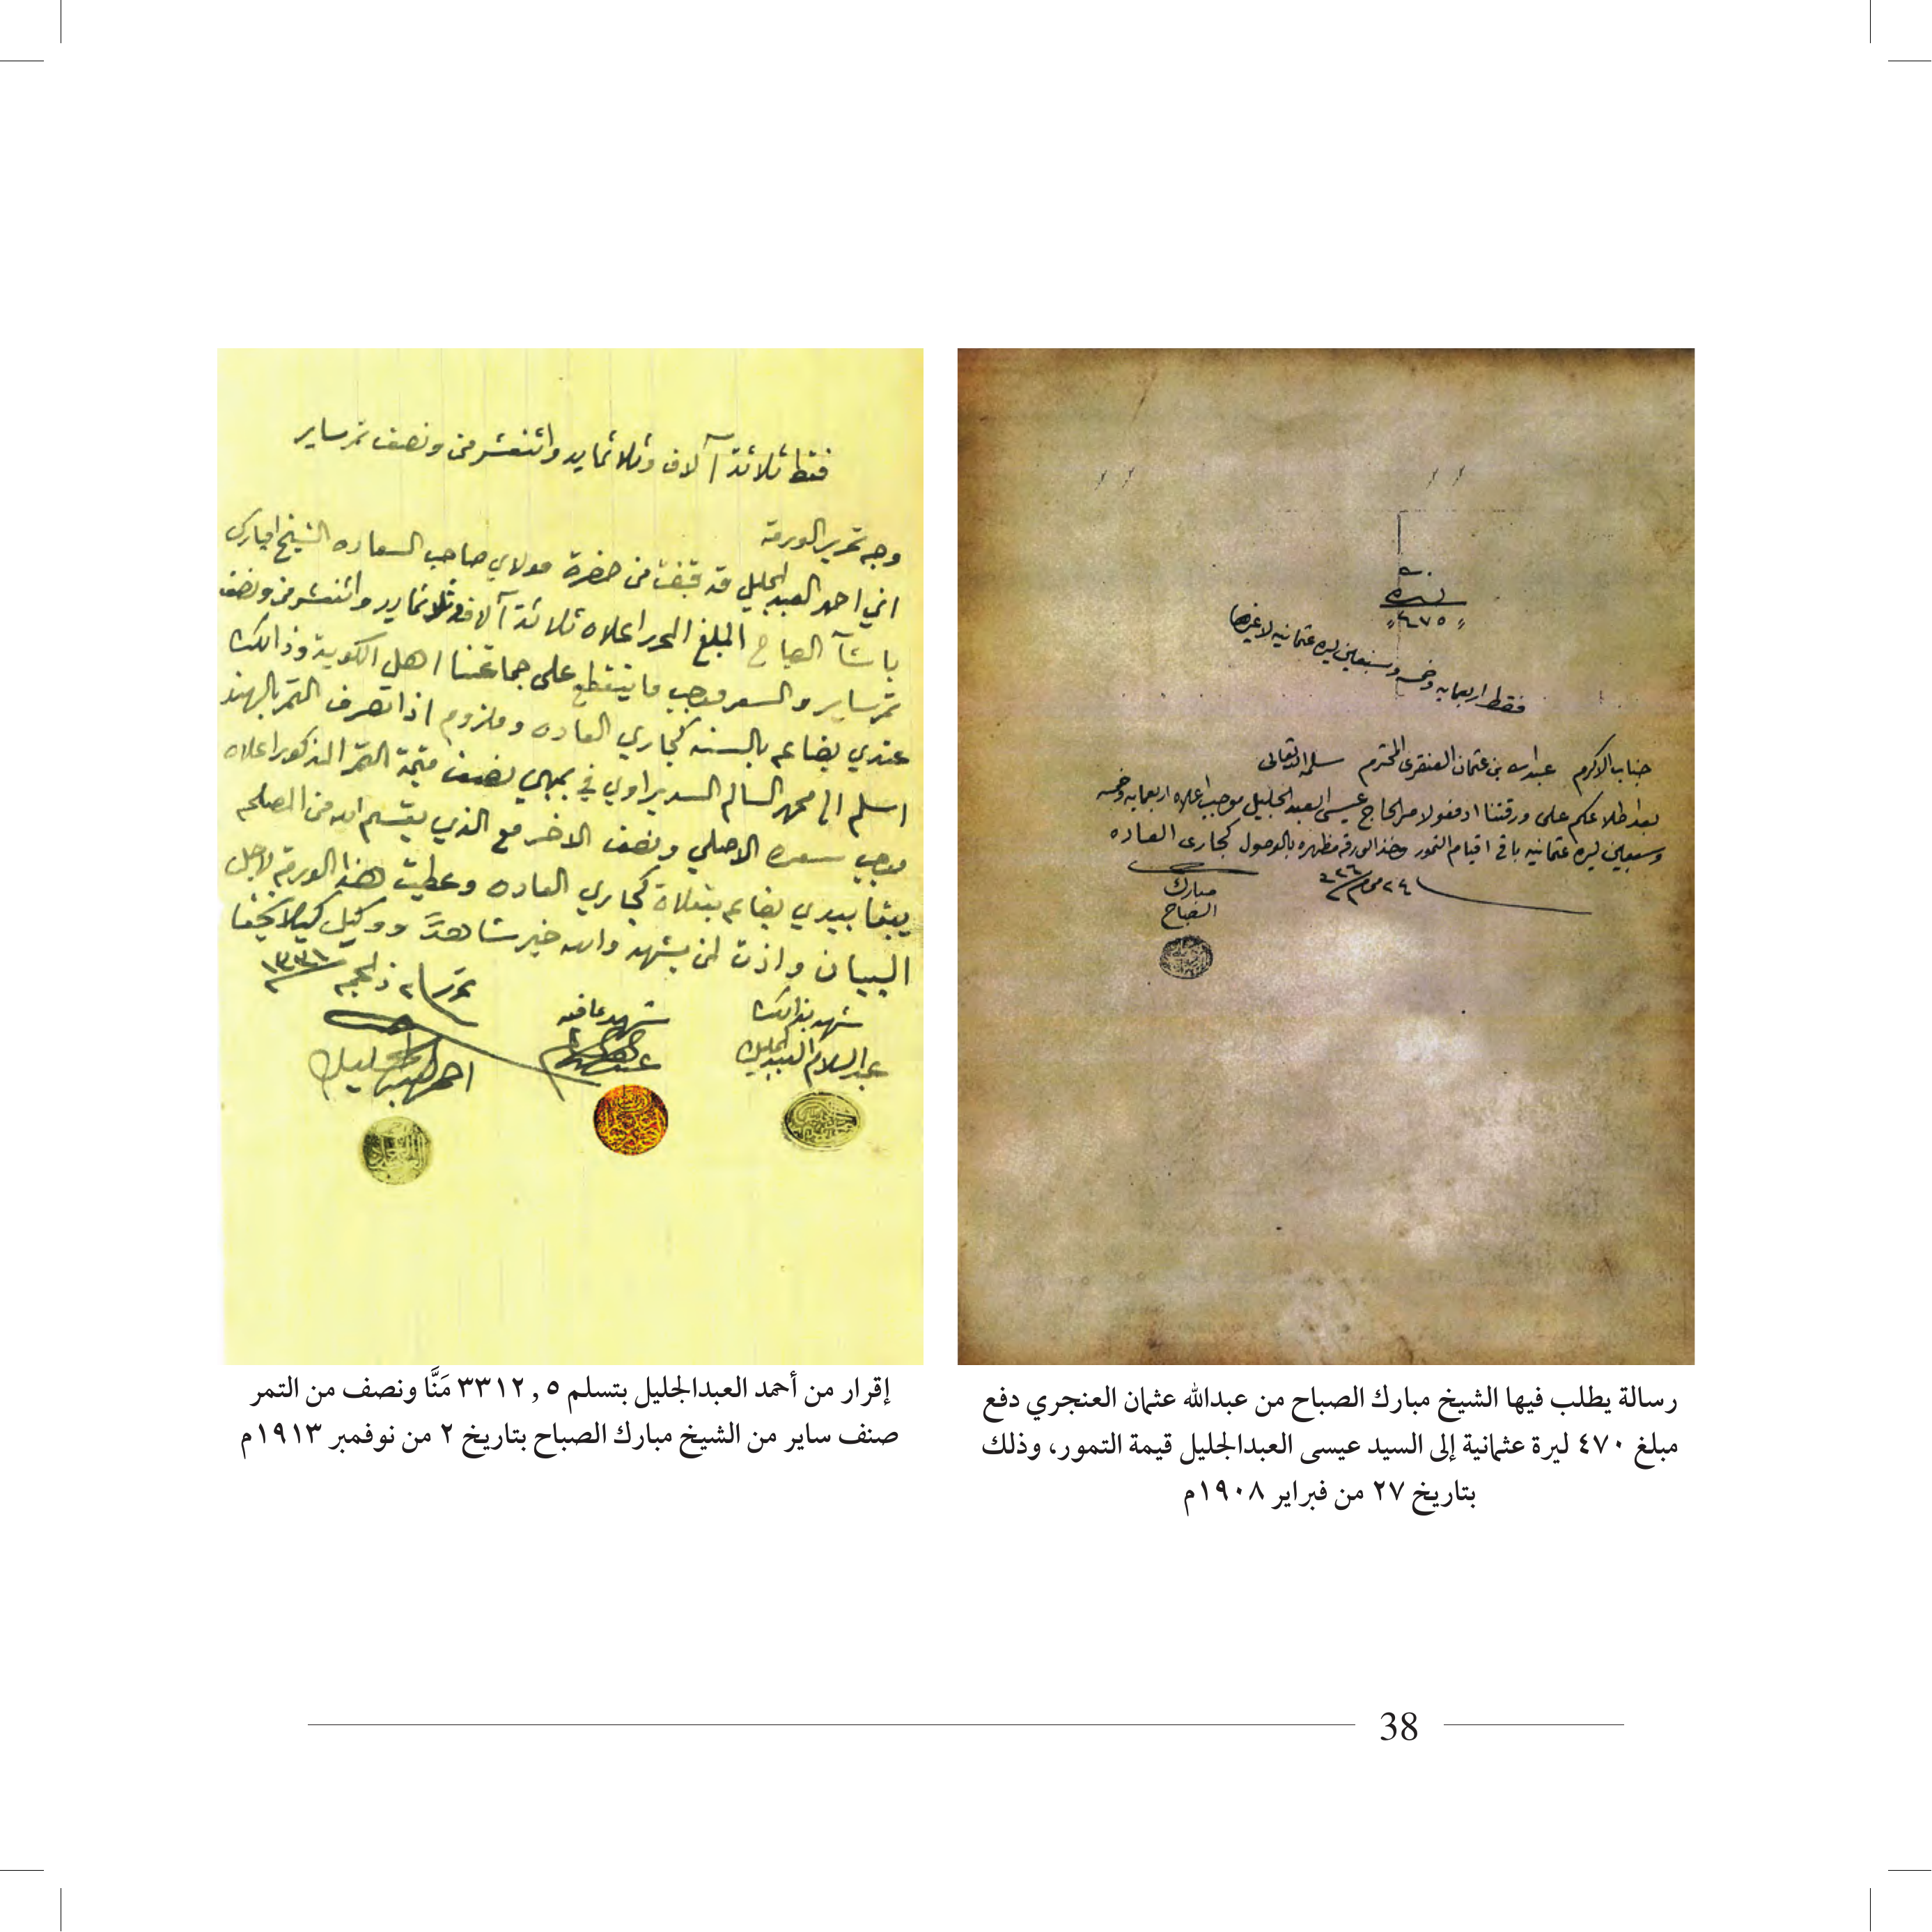 ليره
"٤٧٥"
فقط اربعمايه وخمسه وسبعين ليره عثمانيه لا غيرها
جناب الاكرم عبدالله بن عثمان العنقري المحترم سلمه الله تعالى
بعد اطلاعكم على ورقتنا ادفعوا لامر الحاج عيسى العبدالجليل موجب اعلاه اربعمايه وخمسه
وسبعين ليره عثمانيه باقي اقيام التمور وخذ الورقه مظهره بالوصول كجاري العاده
مبارك
الصباح
رسالة يطلب فيها الشيخ مبارك الصباح من عبدالله عثمان العنجري دفع
مبلغ ٤٧٠ ليرة عثمانية إلى السيد عيسى العبدالجليل قيمة التمور، وذلك
بتاريخ ٢٧ من فبراير ١٩٠٨م
فقط ثلاثة آلاف وثلاثمايه واثنعشر من ونصف تمر ساير
وجه تحرير الورقه
اني احمد العبدالجليل قد قبضت من حضرة مولاي صاحب السعاده الشيخ امبارك
باشا الصباح المبلغ المحرر اعلاه ثلاثة آلاف وثلاثمايه واثنعشر من ونصف
تمر ساير والسعر موجب ما ينقطع على جماعتنا اهل الكويت وذالك
عندي بضاعه بالسنه كجاري العاده وملزوم اذا تصرف التمر بالهند
اسلم الى محمد السالم السديراوي في بمبي نصف قيمة التمر المذكور اعلاه
موجب سعره الاصلي ونصف الاخر مع الذي يقسم الله من المصلحه
يبقا بيدي بضاعه كجاري العاده وعطيت هذا الورقه لاجل
البيان واذنت لمن يشهد والله خير شاهد ووكيل كيلا يخفا
تحرر ٢ ذ الحجه ١٣٣١
شهد بذالك
عبدالسلام العبدالجليل
شهد بما فيه
احمد العبدالجليل
إقرار من أحمد العبدالجليل بتسلم ٣٣١٢,٥ مَنَّا ونصف من التمر
صنف ساير من الشيخ مبارك الصباح بتاريخ ٢ من نوفمبر ١٩١٣م
38